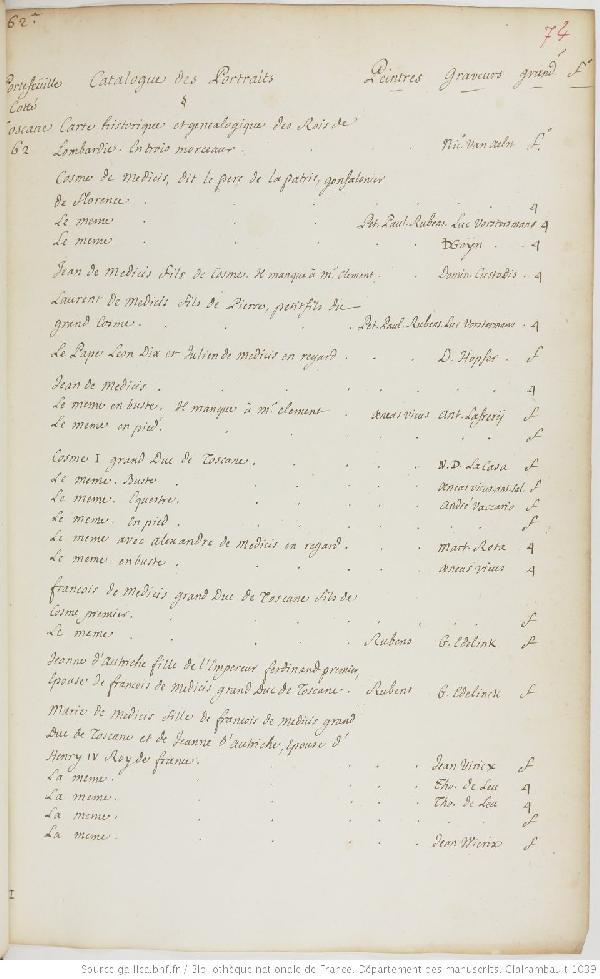 62.
74
Portefeuille Catalogue des Portraits Peintres Graveurs grand.r f.o
Cotté
Toscane Carte historique et genealogique des Rois de
62 Lombardie. En trois morceaux. Nic. Van aeln f.o
Cosme de Medicis, dit le pere de la patrie, gonfalonier
de Florence. 4
Le meme. Pet. Paul. Rubens. Luc Vorstermans 4
Le meme. 4
Jean de Medicis fils de Cosme. Il manque à Mr. Clement. Domin. Custodis. 4
Laurent de Medicis fils de Pierre, petit fils du
grand Cosme. Pet. Paul. Rubens. Luc Vorstermans. 4
Le Pape Leon Dix et Julien de Medicis en regard. D. Hopfer. f
Jean de Medicis. 4
Le meme en buste. Il manque à Mr. Clement. Æneas Vicus Ant. Lafrerij f
Le meme en pied. f
Cosme I grand Duc de Toscane. N. D. La Casa f
Le meme. Buste. Æneas Vicus f
Le meme. Equestre. André Vaccario f
Le meme. En pied. f
Le meme avec Alexandre de Medicis en regard. Mart. Rota 4
Le meme en buste. Æneas Vicus 4
François de Medicis grand Duc de Toscane fils de
Cosme premier. f
Le meme. Rubens G. Edelink f
Jeanne d'Autriche fille de l'Empereur ferdinand premier,
Epouse de françois de Medicis grand Duc de Toscane. Rubens G. Edelinck f
Marie de Medicis fille de françois de Medicis grand
Duc de Toscane et de Jeanne d'Autriche, Epouse d'
Henry IV Roy de france. Jean Wiriex f
La meme. Tho. de Leu 4
La meme. Tho. de Leu 4
La meme. f
La meme. Jean Wierix f
I
Source gallica.bnf.fr / Bibliothèque nationale de France. Département des manuscrits. Clairambault 1039